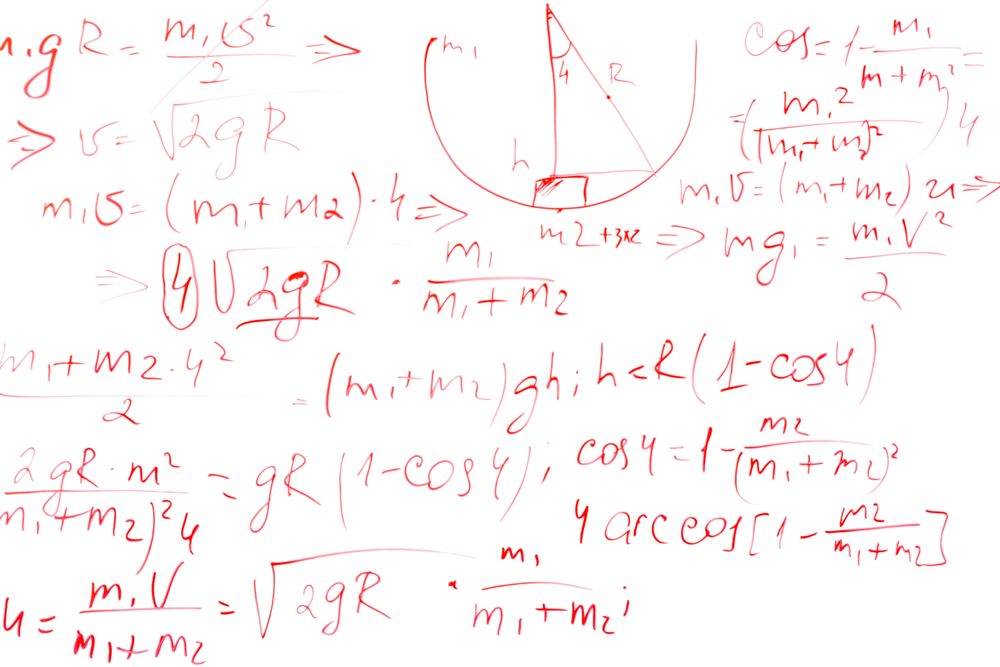 m₁gR = m₁υ²/2 ⇒
⇒ υ = √2gR
m₁υ = (m₁+m2)·4 ⇒
⇒ 4 √2gR · m₁/(m₁+m2)
m₁+m2·4²/2 = (m₁+m2)gh; h<R(1-cos4)
2gR·m²/(m₁+m2)²4 = gR(1-cos4); cos4=1-m2/(m₁+m2)²
4 arccos[1-m2/(m₁+m2)]
4 = m₁V/(m₁+m2) = √2gR · m₁/(m₁+m2);
m₁
4
R
h
m2+3x2 ⇒ mg₁ = m₁V²/2
cos=1-m₁/(m+m²)=
=(m₁2/(m₁+m2)²)4
m₁υ=(m₁+m2)24⇒